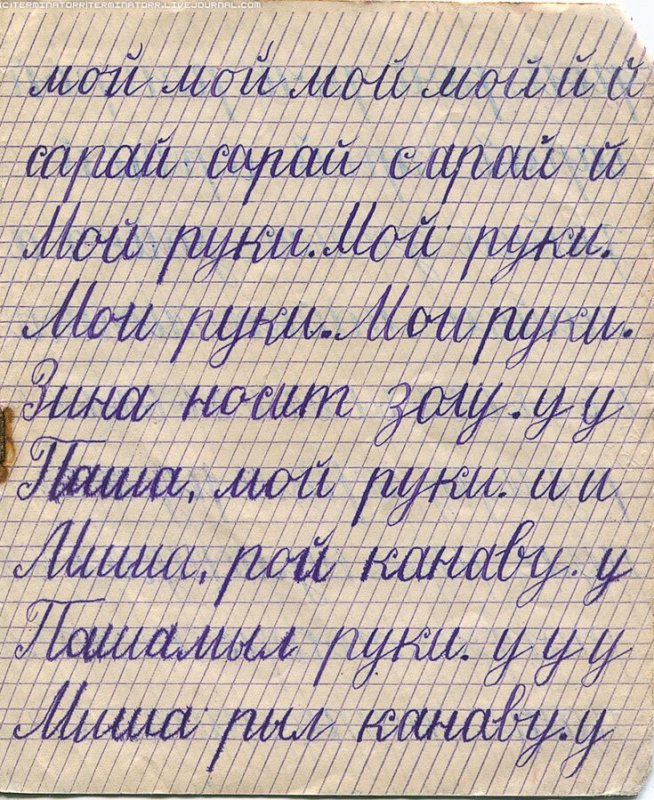 ICTERMINATORRTERMINATORR.LIVEJOURNAL.COM
мой мой мой мой й й
сарай сарай сарай й
Мой руки. Мой руки.
Мои руки. Мои руки.
Зина носит золу. у у
Паша, мой руки. и и
Миша, рой канаву. у
Паша мыл руки. у у у
Миша рыл канаву. у